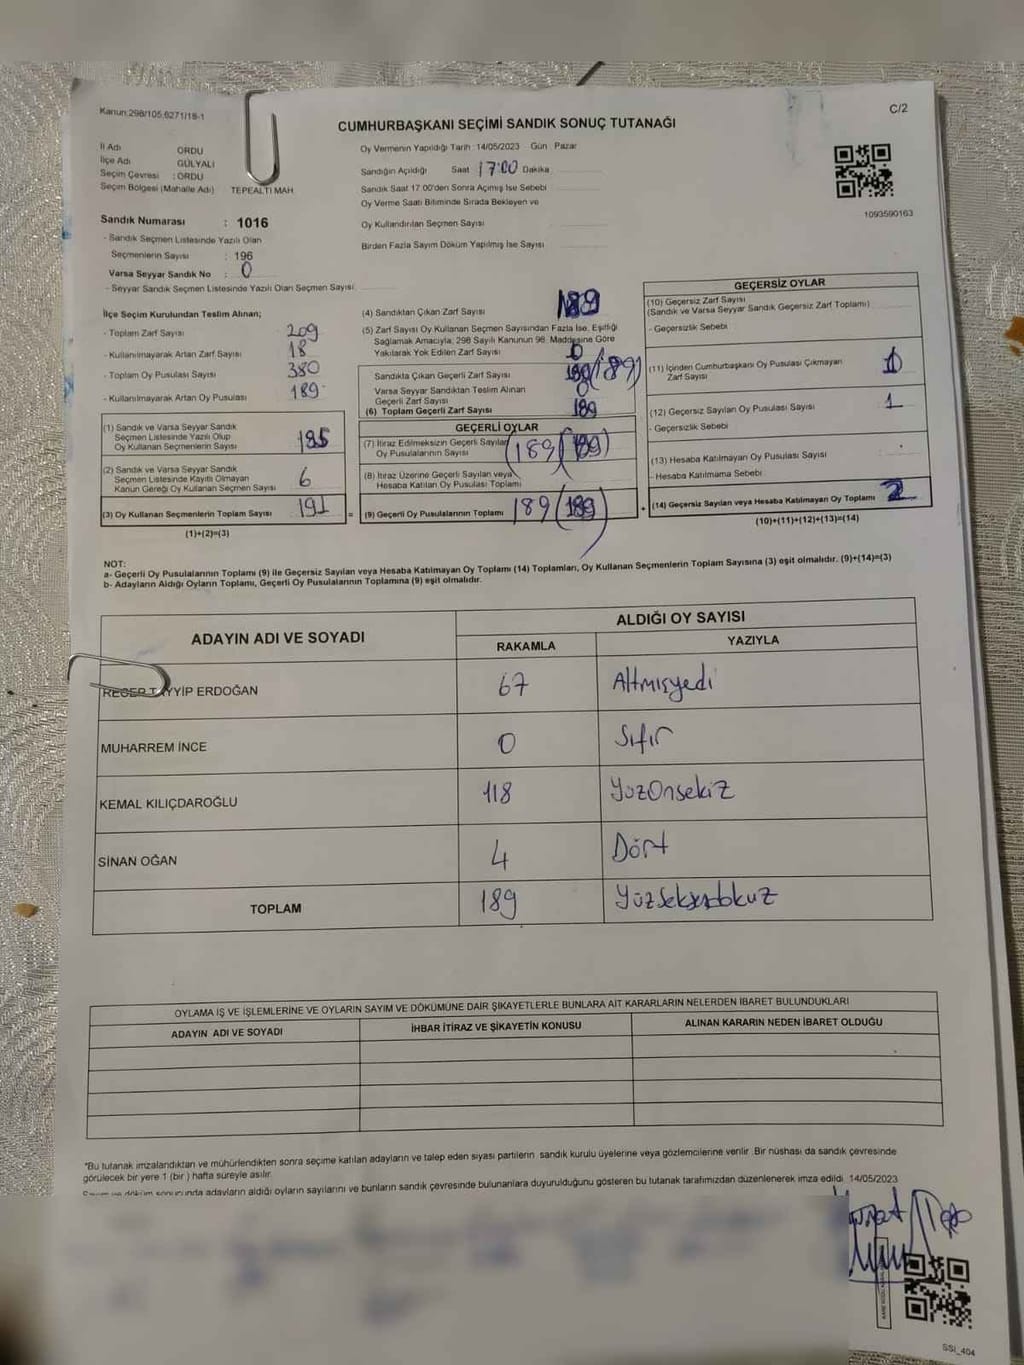 Kanun:298/105,6271/18-1
C/2
CUMHURBAŞKANI SEÇİMİ SANDIK SONUÇ TUTANAĞI
İl Adı ORDU
İlçe Adı GÜLYALI
Seçim Çevresi : ORDU
Seçim Bölgesi (Mahalle Adı) TEPEALTI MAH
Sandık Numarası : 1016
- Sandık Seçmen Listesinde Yazılı Olan
Seçmenlerin Sayısı : 196
Varsa Seyyar Sandık No : 0
- Seyyar Sandık Seçmen Listesinde Yazılı Olan Seçmen Sayısı
Oy Vermenin Yapıldığı Tarih : 14/05/2023 Gün Pazar
Sandığın Açıldığı Saat 17:00 Dakika
Sandık Saat 17.00'den Sonra Açımış İse Sebebi
Oy Verme Saati Bitiminde Sırada Bekleyen ve
Oy Kullandırılan Seçmen Sayısı
Birden Fazla Sayım Döküm Yapılmış İse Sayısı
1093590163
İlçe Seçim Kurulundan Teslim Alınan;
- Toplam Zarf Sayısı 209
- Kullanılmayarak Artan Zarf Sayısı 18
- Toplam Oy Pusulası Sayısı 380
- Kullanılmayarak Artan Oy Pusulası 189
(1) Sandık ve Varsa Seyyar Sandık
Seçmen Listesinde Yazılı Olup
Oy Kullanan Seçmenlerin Sayısı 185
(2) Sandık ve Varsa Seyyar Sandık
Seçmen Listesinde Kayıtlı Olmayan
Kanun Gereği Oy Kullanan Seçmen Sayısı 6
(3) Oy Kullanan Seçmenlerin Toplam Sayısı 191
(1)+(2)=(3)
(4) Sandıktan Çıkan Zarf Sayısı 189
(5) Zarf Sayısı Oy Kullanan Seçmen Sayısından Fazla İse, Eşitliği
Sağlamak Amacıyla, 298 Sayılı Kanunun 98. Maddesine Göre
Yakılarak Yok Edilen Zarf Sayısı 0
Sandıkta Çıkan Geçerli Zarf Sayısı 189 (189)
Varsa Seyyar Sandıktan Teslim Alınan
Geçerli Zarf Sayısı 0
(6) Toplam Geçerli Zarf Sayısı 189
GEÇERLİ OYLAR
(7) İtiraz Edilmeksizin Geçerli Sayılan
Oy Pusulalarının Sayısı 189 (189)
(8) İtiraz Üzerine Geçerli Sayılan veya
Hesaba Katılan Oy Pusulası Toplamı
= (9) Geçerli Oy Pusulalarının Toplamı 189 (189)
GEÇERSİZ OYLAR
(10) Geçersiz Zarf Sayısı
(Sandık ve Varsa Seyyar Sandık Geçersiz Zarf Toplamı)
- Geçersizlik Sebebi
(11) İçinden Cumhurbaşkanı Oy Pusulası Çıkmayan
Zarf Sayısı
(12) Geçersiz Sayılan Oy Pusulası Sayısı 1
- Geçersizlik Sebebi
(13) Hesaba Katılmayan Oy Pusulası Sayısı
- Hesaba Katılmama Sebebi
+ (14) Geçersiz Sayılan veya Hesaba Katılmayan Oy Toplamı 2
(10)+(11)+(12)+(13)=(14)
NOT:
a- Geçerli Oy Pusulalarının Toplamı (9) ile Geçersiz Sayılan veya Hesaba Katılmayan Oy Toplamı (14) Toplamları, Oy Kullanan Seçmenlerin Toplam Sayısına (3) eşit olmalıdır. (9)+(14)=(3)
b- Adayların Aldığı Oyların Toplamı, Geçerli Oy Pusulalarının Toplamına (9) eşit olmalıdır.
ADAYIN ADI VE SOYADI
ALDIĞI OY SAYISI
RAKAMLA YAZIYLA
RECEP TAYYİP ERDOĞAN 67 Altmışyedi
MUHARREM İNCE 0 Sıfır
KEMAL KILIÇDAROĞLU 118 YüzOnsekiz
SİNAN OĞAN 4 Dört
TOPLAM 189
OYLAMA İŞ VE İŞLEMLERİNE VE OYLARIN SAYIM VE DÖKÜMÜNE DAİR ŞİKAYETLERLE BUNLARA AİT KARARLARIN NELERDEN İBARET BULUNDUKLARI
ADAYIN ADI VE SOYADI İHBAR İTİRAZ VE ŞİKAYETİN KONUSU ALINAN KARARIN NEDEN İBARET OLDUĞU
*Bu tutanak imzalandıktan ve mühürlendikten sonra seçime katılan adayların ve talep eden siyasi partilerin sandık kurulu üyelerine veya gözlemcilerine verilir. Bir nüshası da sandık çevresinde
görülecek bir yere 1 (bir) hafta süreyle asılır.
Sayım ve döküm sonucunda adayların aldığı oyların sayılarını ve bunların sandık çevresinde bulunanlara duyurulduğunu gösteren bu tutanak tarafımızdan düzenlenerek imza edildi. 14/05/2023
SSI_404